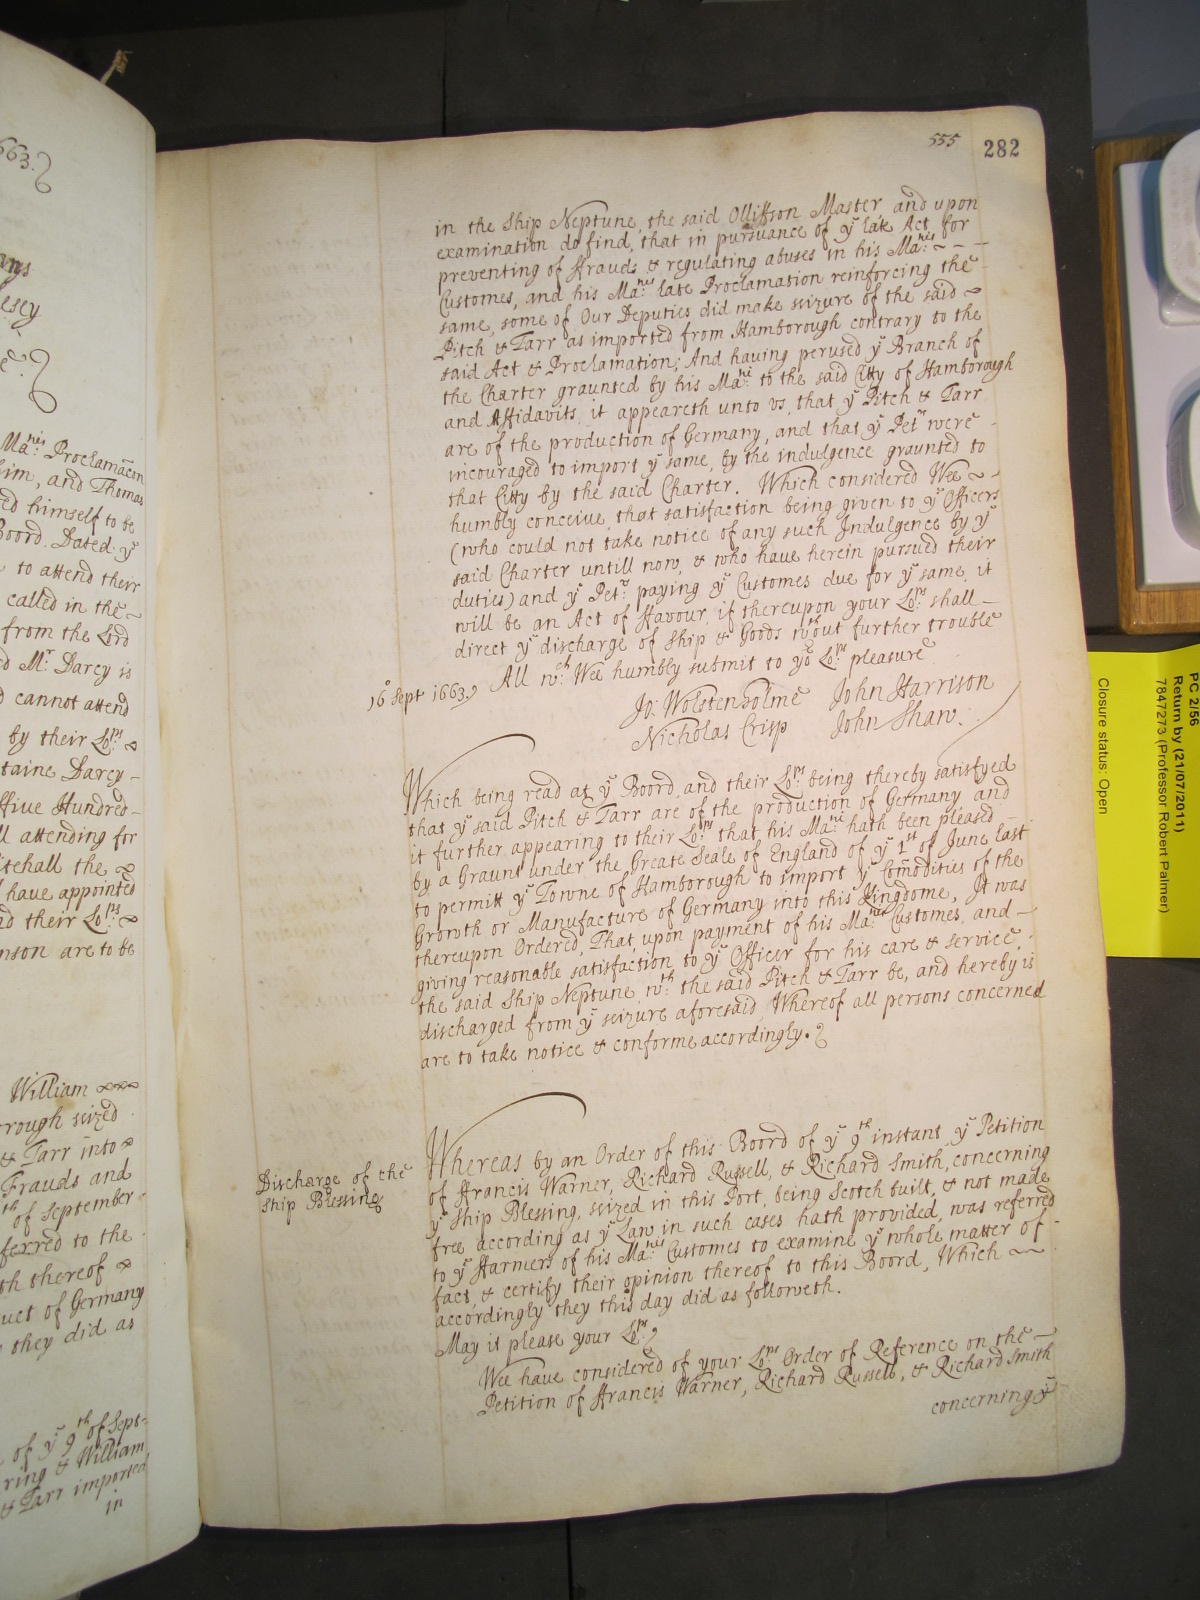 555 282
in the Ship Neptune, the said Ollifson Master and upon
examination do find, that in pursuance of yͤ late Act for
preventing of ffrauds & regulating abuses in his Maᵗⁱᵉˢ
Customes, and his Maᵗⁱᵉˢ late Proclamation reinforcing the
same, some of Our Deputies did make seizure of the said
Pitch & Tarr as imported from Hamborough contrary to the
said Act & Proclamation; And having perused yͤ Branch of
the Charter graunted by his Maᵗⁱᵉ to the said Citty of Hamborough
and Affidavits, it appeareth unto vs, that yͤ Pitch & Tarr
are of the production of Germany, and that yͤ Petʳˢ were
incouraged to import yͤ same, by the indulgence graunted to
that Citty by the said Charter. Which considered Wee
humbly conceive, that satisfaction being given to yͤ Officers
(who could not take notice of any such Indulgence by yͤ
said Charter untill now, & who have herein pursued their
duties) and yͤ Petʳˢ paying yͤ Customes due for yͤ same, it
will be an Act of ffavour, if thereupon your Loᵖᵖˢ shall
direct yͤ discharge of Ship & Goods wᵗʰout further trouble
All wᶜʰ Wee humbly submit to yoʳ Loᵖᵖˢ pleasure
16ᵒ Sept 1663
Jo: Wolstenholme John Harrison
Nicholas Crisp John Shaw.
Which being read at yͤ Board, and their Loᵖᵖˢ being thereby satisfyed
that yͤ said Pitch & Tarr are of the production of Germany and
it further appearing to their Loᵖᵖˢ that his Maᵗⁱᵉ hath been pleased
by a Graunt under the Greate Seale of England of yͤ 1ˢᵗ of June last
to permitt yͤ Towne of Hamborough to import yͤ Com̃odities of the
Growth or Manufacture of Germany into this Kingdome, It was
thereupon Ordered, That upon payment of his Maᵗⁱᵉˢ Customes, and
giving reasonable satisfaction to yͤ Officer for his care & service,
the said Ship Neptune wᵗʰ the said Pitch & Tarr be, and hereby is
discharged from yͤ seizure aforesaid, Whereof all persons concerned
are to take notice & conforme accordingly.
Discharge of the
Ship Blessing
Whereas by an Order of this Board of yͤ 9ᵗʰ instant yͤ Petition
of ffrancis Warner, Richard Russell, & Richard Smith, concerning
yͤ Ship Blessing, seized in this Port, being Scotch built, & not made
free according as yͤ Law in such cases hath provided, was referred
to yͤ ffarmers of his Maᵗⁱᵉˢ Customes to examine yͤ whole matter of
fact, & certify their opinion thereof to this Boord, Which
accordingly they this day did as followeth.
May it please your Loᵖᵖˢ
Wee have considered of your Loᵖᵖˢ Order of Reference on the
Petition of ffrancis Warner, Richard Russell, & Richard Smith
concerning yͤ
663.
Maᵗⁱᵉˢ Proclamac̃on
him, and Thomas
ed himself to be
Boord. Dated yͤ
to attend their
called in the
from the Lord
ed Mʳ Darcy is
d cannot attend
by their Loᵖᵖˢ
taine Darcy
ffive Hundred
ll attending for
itehall the
have appointed
nd their Loᵖᵖˢ
nson are to be
William
rough seized
& Tarr into
Frauds and
ᵗʰ of September
ferred to the
th thereof
uct of Germany
they did as
of yͤ 9ᵗʰ of Sept-
ring & William
& Tarr imported
in
PC 2/56
Return by (21/07/2011)
7847273 (Professor Robert Palmer)
Closure status: Open